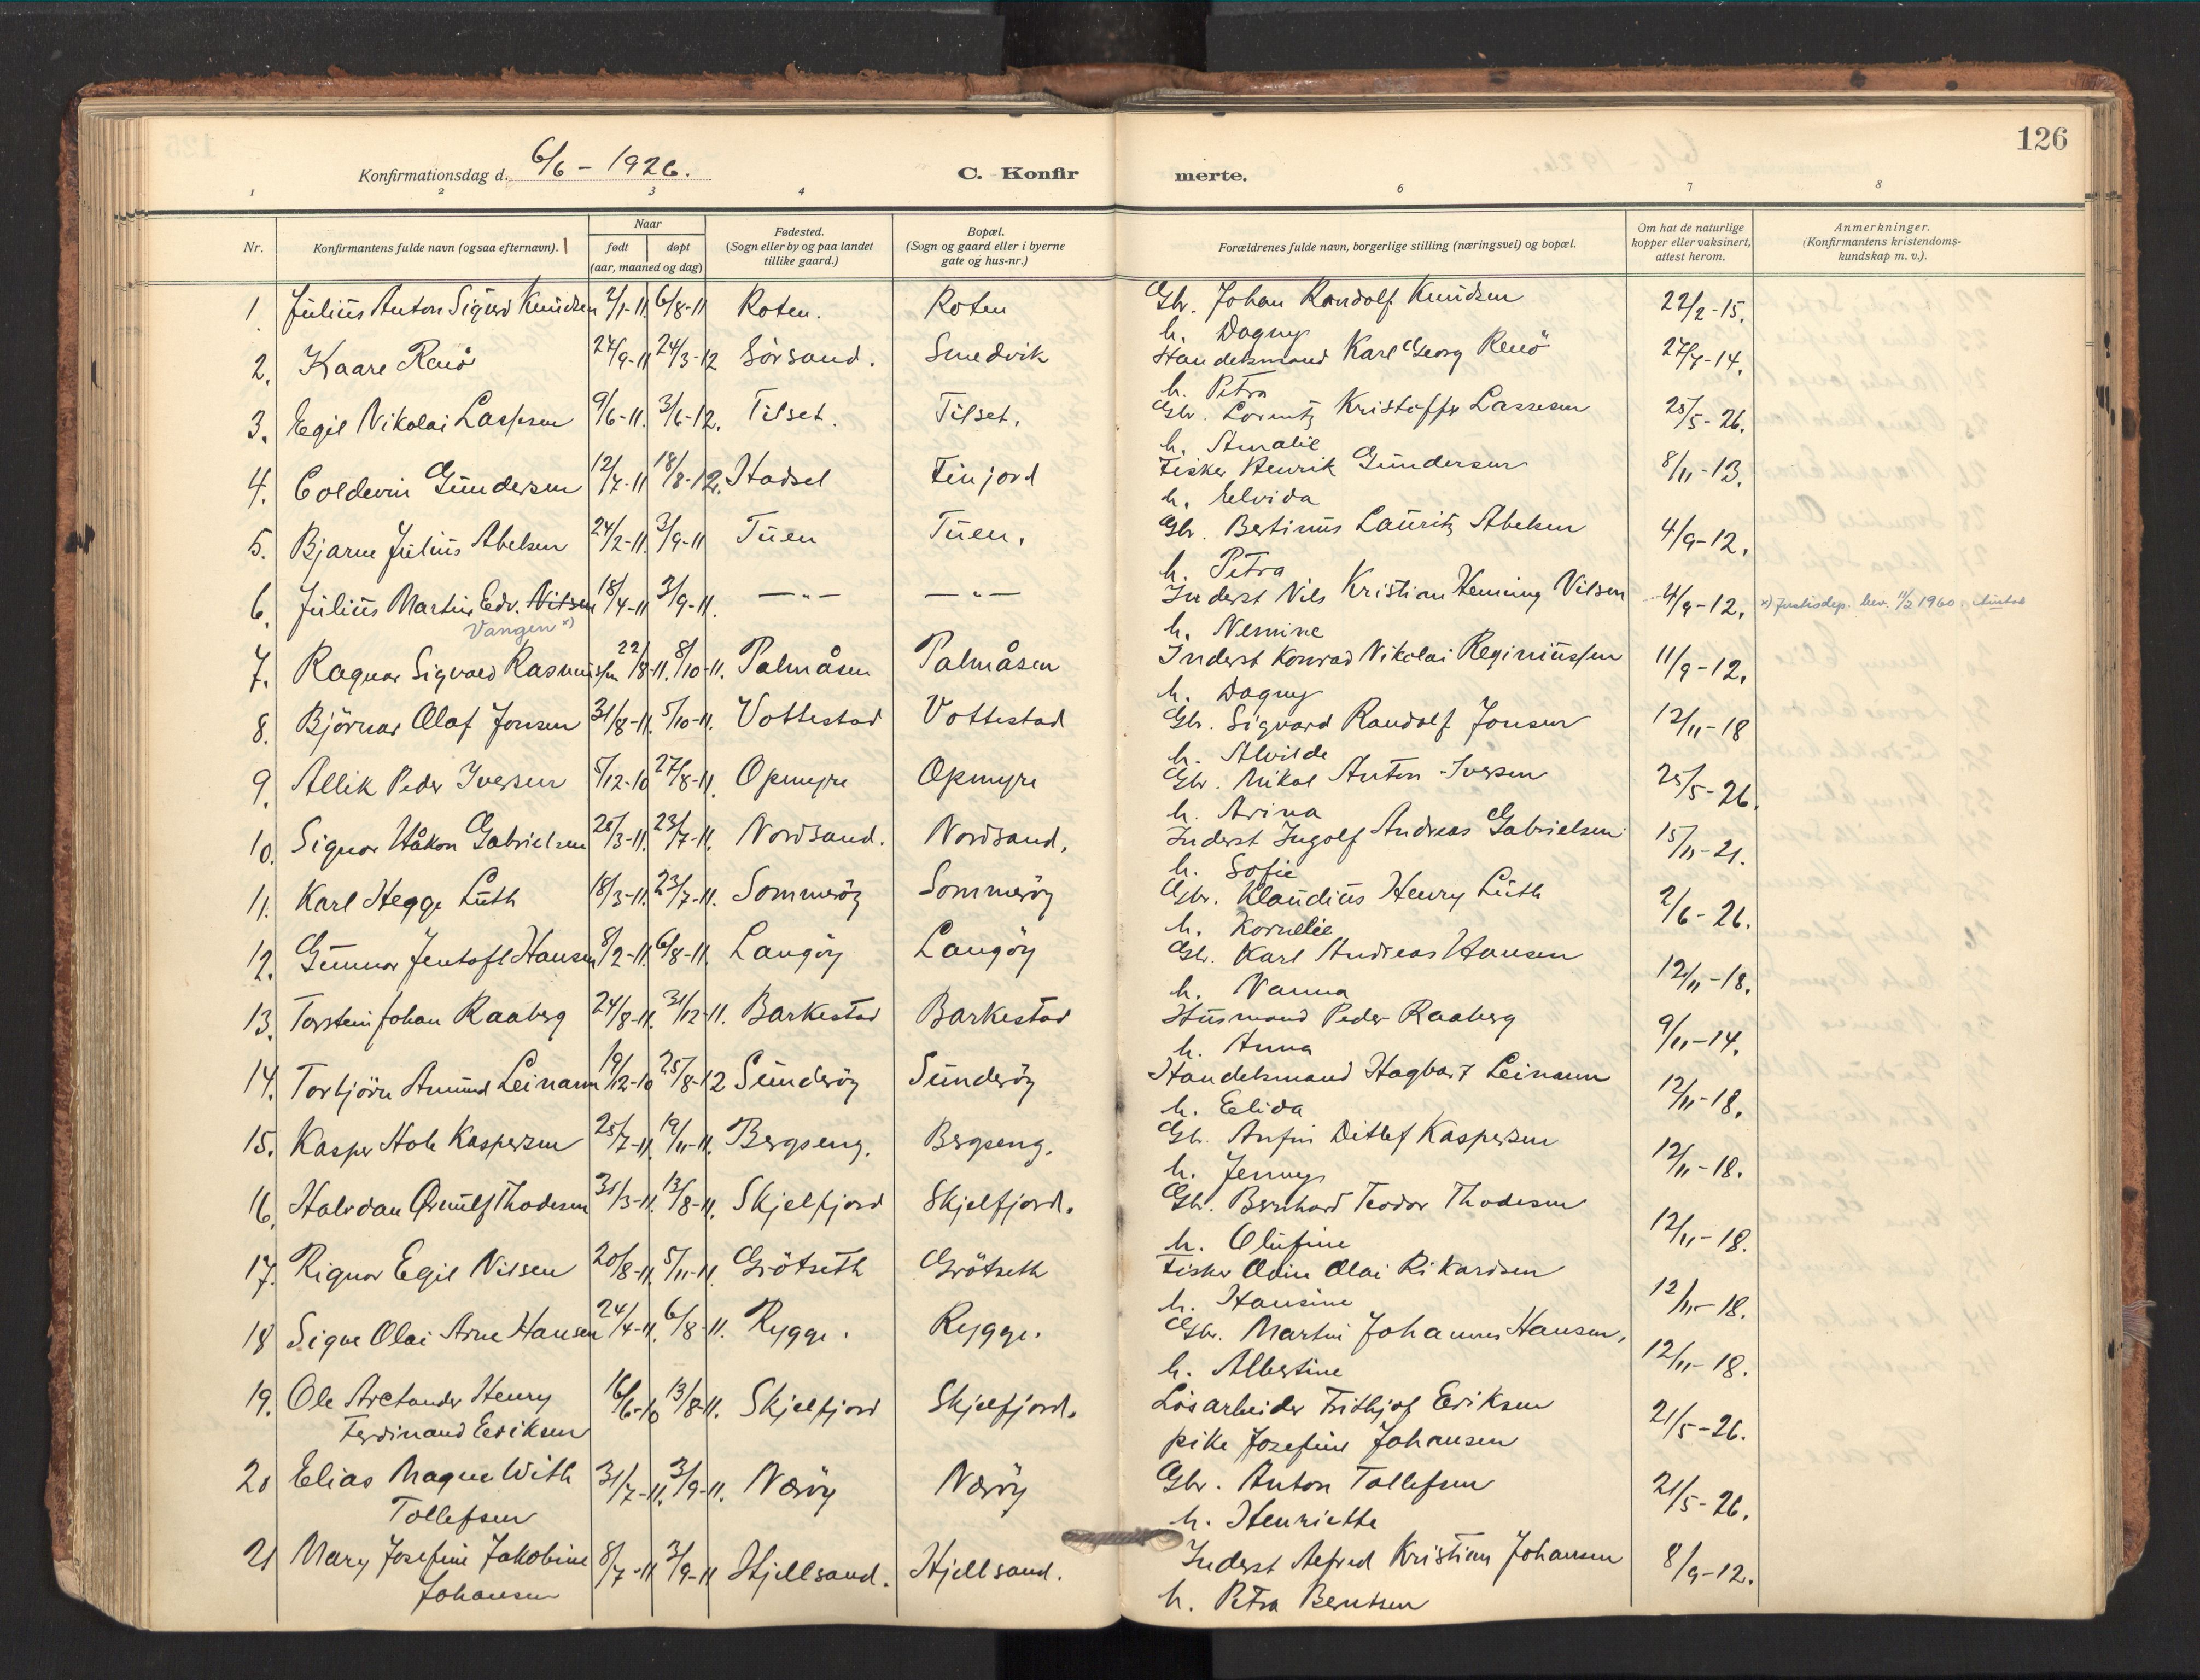 126
Konfirmationsdag d. 6/6 - 1926.
C. Konfirmerte.
1 2 3 4 6 7 8
Nr.
Konfirmantens fulde navn (ogsaa efternavn).
Naar
født
døpt
(aar, maaned og dag)
Fødested.
(Sogn eller by og paa landet
tillike gaard.)
Bopæl.
(Sogn og gaard eller i byerne
gate og hus-nr.)
Forældrenes fulde navn, borgerlige stilling (næringsvei) og bopæl.
Om hat de naturlige
kopper eller vaksinert,
attest herom.
Anmerkninger.
(Konfirmantens kristendoms-
kundskap m. v.).
1. Julius Anton Sigurd Knudsen 2/1-11 6/8-11 Roten. Roten Gbr. Johan Randolf Knudsen 22/2-15.
h. Dagny
2. Kaare Renö 27/9-11 24/3-12 Sörsand. Smedvik Handelsmand Karl Georg Renö 27/7-14.
h. Petra
3. Egil Nikolai Lassesen 9/6-11. 3/6-12. Tilset. Tilset. Gbr. Lorentz Kristoffer Lassesen 25/5-26.
h. Amalie
4. Coldevin Gundersen 12/7-11 18/8-12. Hadsel Finjord Fisker Henrik Gundersen 8/11-13.
h. Elvida
5. Bjarne Julius Abelsen 24/2-11. 3/9-11 Tuen Tuen. Gbr. Bertinus Lauritz Abelsen 4/9-12.
h. Petra
6. Julius Martin Edv. Nilsen 18/4-11 3/9-11. —"— —"— Inderst Nils Kristian Henning Nilsen 4/9-12. x) Justisdep. bev. 11/2 1960.
Vangen x)
h. Nemine
7. Ragnar Sigvald Rasmussen 22/8-11. 8/10-11. Palmåsen Palmåsen Inderst Konrad Nikolai Reginiussen 11/9-12.
h. Dagny
8. Björnar Olaf Jonsen 31/8-11. 5/10-11. Vottestad Vottestad Gbr. Sigvard Randolf Jonsen 12/11-18
h. Alvilde
9. Allik Peder Iversen 5/12-10 27/8-11. Opmyre Opmyre Gbr. Mikal Anton Iversen 25/5-26.
h. Arina
10. Signor Håkon Gabrielsen 28/3-11. 23/7-11. Nordsand. Nordsand. Inderst Ingolf Andreas Gabrielsen 15/11-21.
h. Sofie
11. Karl Hegge Lüth 18/3-11. 23/7-11. Sommeröy Sommeröy Gbr. Klaudius Henry Lüth 2/6-26.
h. Kornelie
12. Gunnar Jentoft Hansen 8/2-11. 6/8-11. Langöy Langöy Gbr. Karl Andreas Hansen 12/11-18.
h. Nanna
13. Torstein Johan Raaberg 24/8-11. 31/12-11. Barkestad Barkestad Husmand Peder Raaberg 9/11-14.
h. Anna
14. Torbjörn Amund Leinann 19/12-10 25/8-12 Sunderöy Sunderöy Handelsmand Hagbart Leinann 12/11-18.
h. Elida
15. Kasper Hole Kaspersen 25/7-11. 19/11-11. Bergseng. Bergseng. Gbr. Anfin Ditlef Kaspersen 12/11-18.
h. Jenny
16. Halvdan Ørnulf Thodesen 31/3-11. 13/8-11. Skjelfjord Skjelfjord. Gbr. Bernhard Teodor Thodesen 12/11-18.
h. Olufine
17. Rignor Egil Nilsen 20/8-11. 5/11-11. Grötseth Grötseth Fisker Odin Olai Rikardsen 12/11-18.
h. Hansine
18 Signe Olai Arne Hansen 24/4-11. 6/8-11. Rygge. Rygge. Gbr. Martin Johannes Hansen. 12/11-18.
h. Albertine
19. Ole Aretander Henry 16/6-10 13/8-11. Skjelfjord Skjelfjord. Lösarbeider Fridtjof Eriksen 21/5-26.
Ferdinand Eriksen pike Josefine Johansen
20 Elias Magne With 31/7-11. 3/9-11. Neröy Neröy Gbr. Anton Tollefsen 21/5-26.
Tollefsen h. Henriette
21 Mary Josefine Jakobine 8/7-11 3/9-11 Hjellsand. Hjellsand. Inderst Alfred Kristian Johansen 8/9-12.
Johansen h. Petra Berntsen